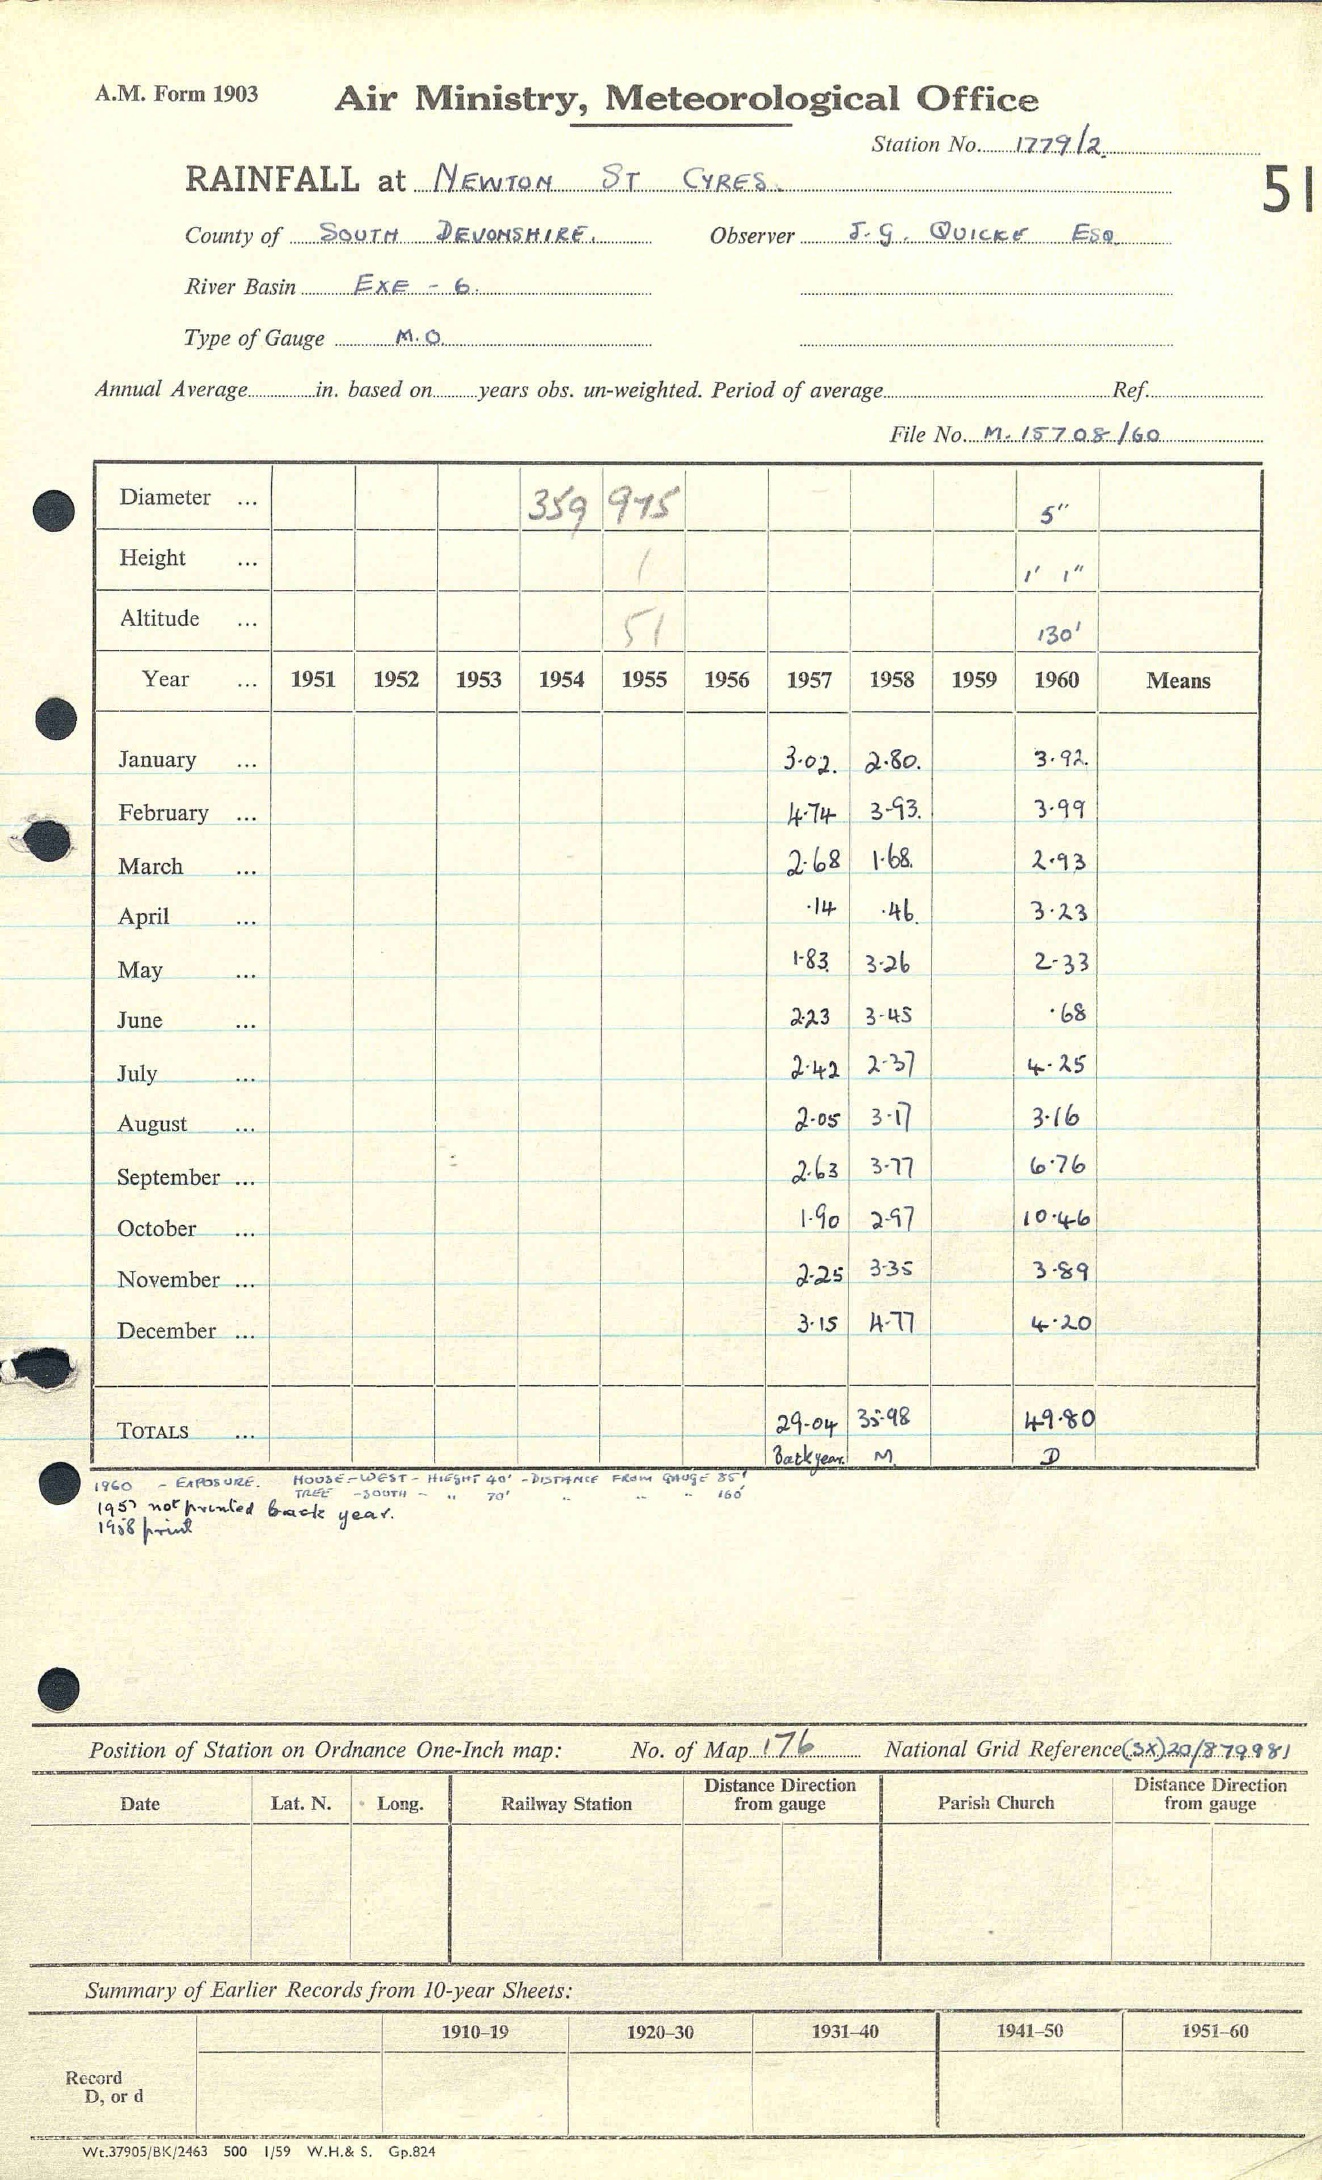 A.M. Form 1903 Air Ministry, Meteorological Office
Station No. 1779/2.
RAINFALL at NEWTON ST CYRES. 51
County of SOUTH DEVONSHIRE. Observer J.G. QUICKE ESQ
River Basin EXE - 6.
Type of Gauge M.O.
Annual Average in. based on years obs. un-weighted. Period of average Ref.
File No. M.15708/60
Diameter ... 359 975 5"
Height ... 1 1' 1"
Altitude ... 51 130'
Year ... 1951 1952 1953 1954 1955 1956 1957 1958 1959 1960 Means
January ... 3.02. 2.80. 3.92.
February ... 4.74 3.93. 3.99
March ... 2.68 1.68. 2.93
April ... .14 .46. 3.23
May ... 1.83. 3.26 2.33
June ... 2.23 3.45 .68
July ... 2.42 2.37 4.25
August ... 2.05 3.17 3.16
September ... 2.63 3.77 6.76
October ... 1.90 2.97 10.46
November ... 2.25 3.35 3.89
December ... 3.15 4.77 4.20
TOTALS ... 29.04 35.98 49.80
Back year. M. D
1960 - EXPOSURE. HOUSE - WEST - HIEGHT 40' - DISTANCE FROM GAUGE 85'
TREE - SOUTH - " 70' " " " 160'
1957 not printed back year.
1958 print
Position of Station on Ordnance One-Inch map: No. of Map 176 National Grid Reference (SX) 20/879981
Date Lat. N. Long. Railway Station Distance Direction from gauge Parish Church Distance Direction from gauge
Summary of Earlier Records from 10-year Sheets:
1910–19 1920–30 1931–40 1941–50 1951–60
Record
D, or d
Wt.37905/BK/2463 500 1/59 W.H.& S. Gp.824